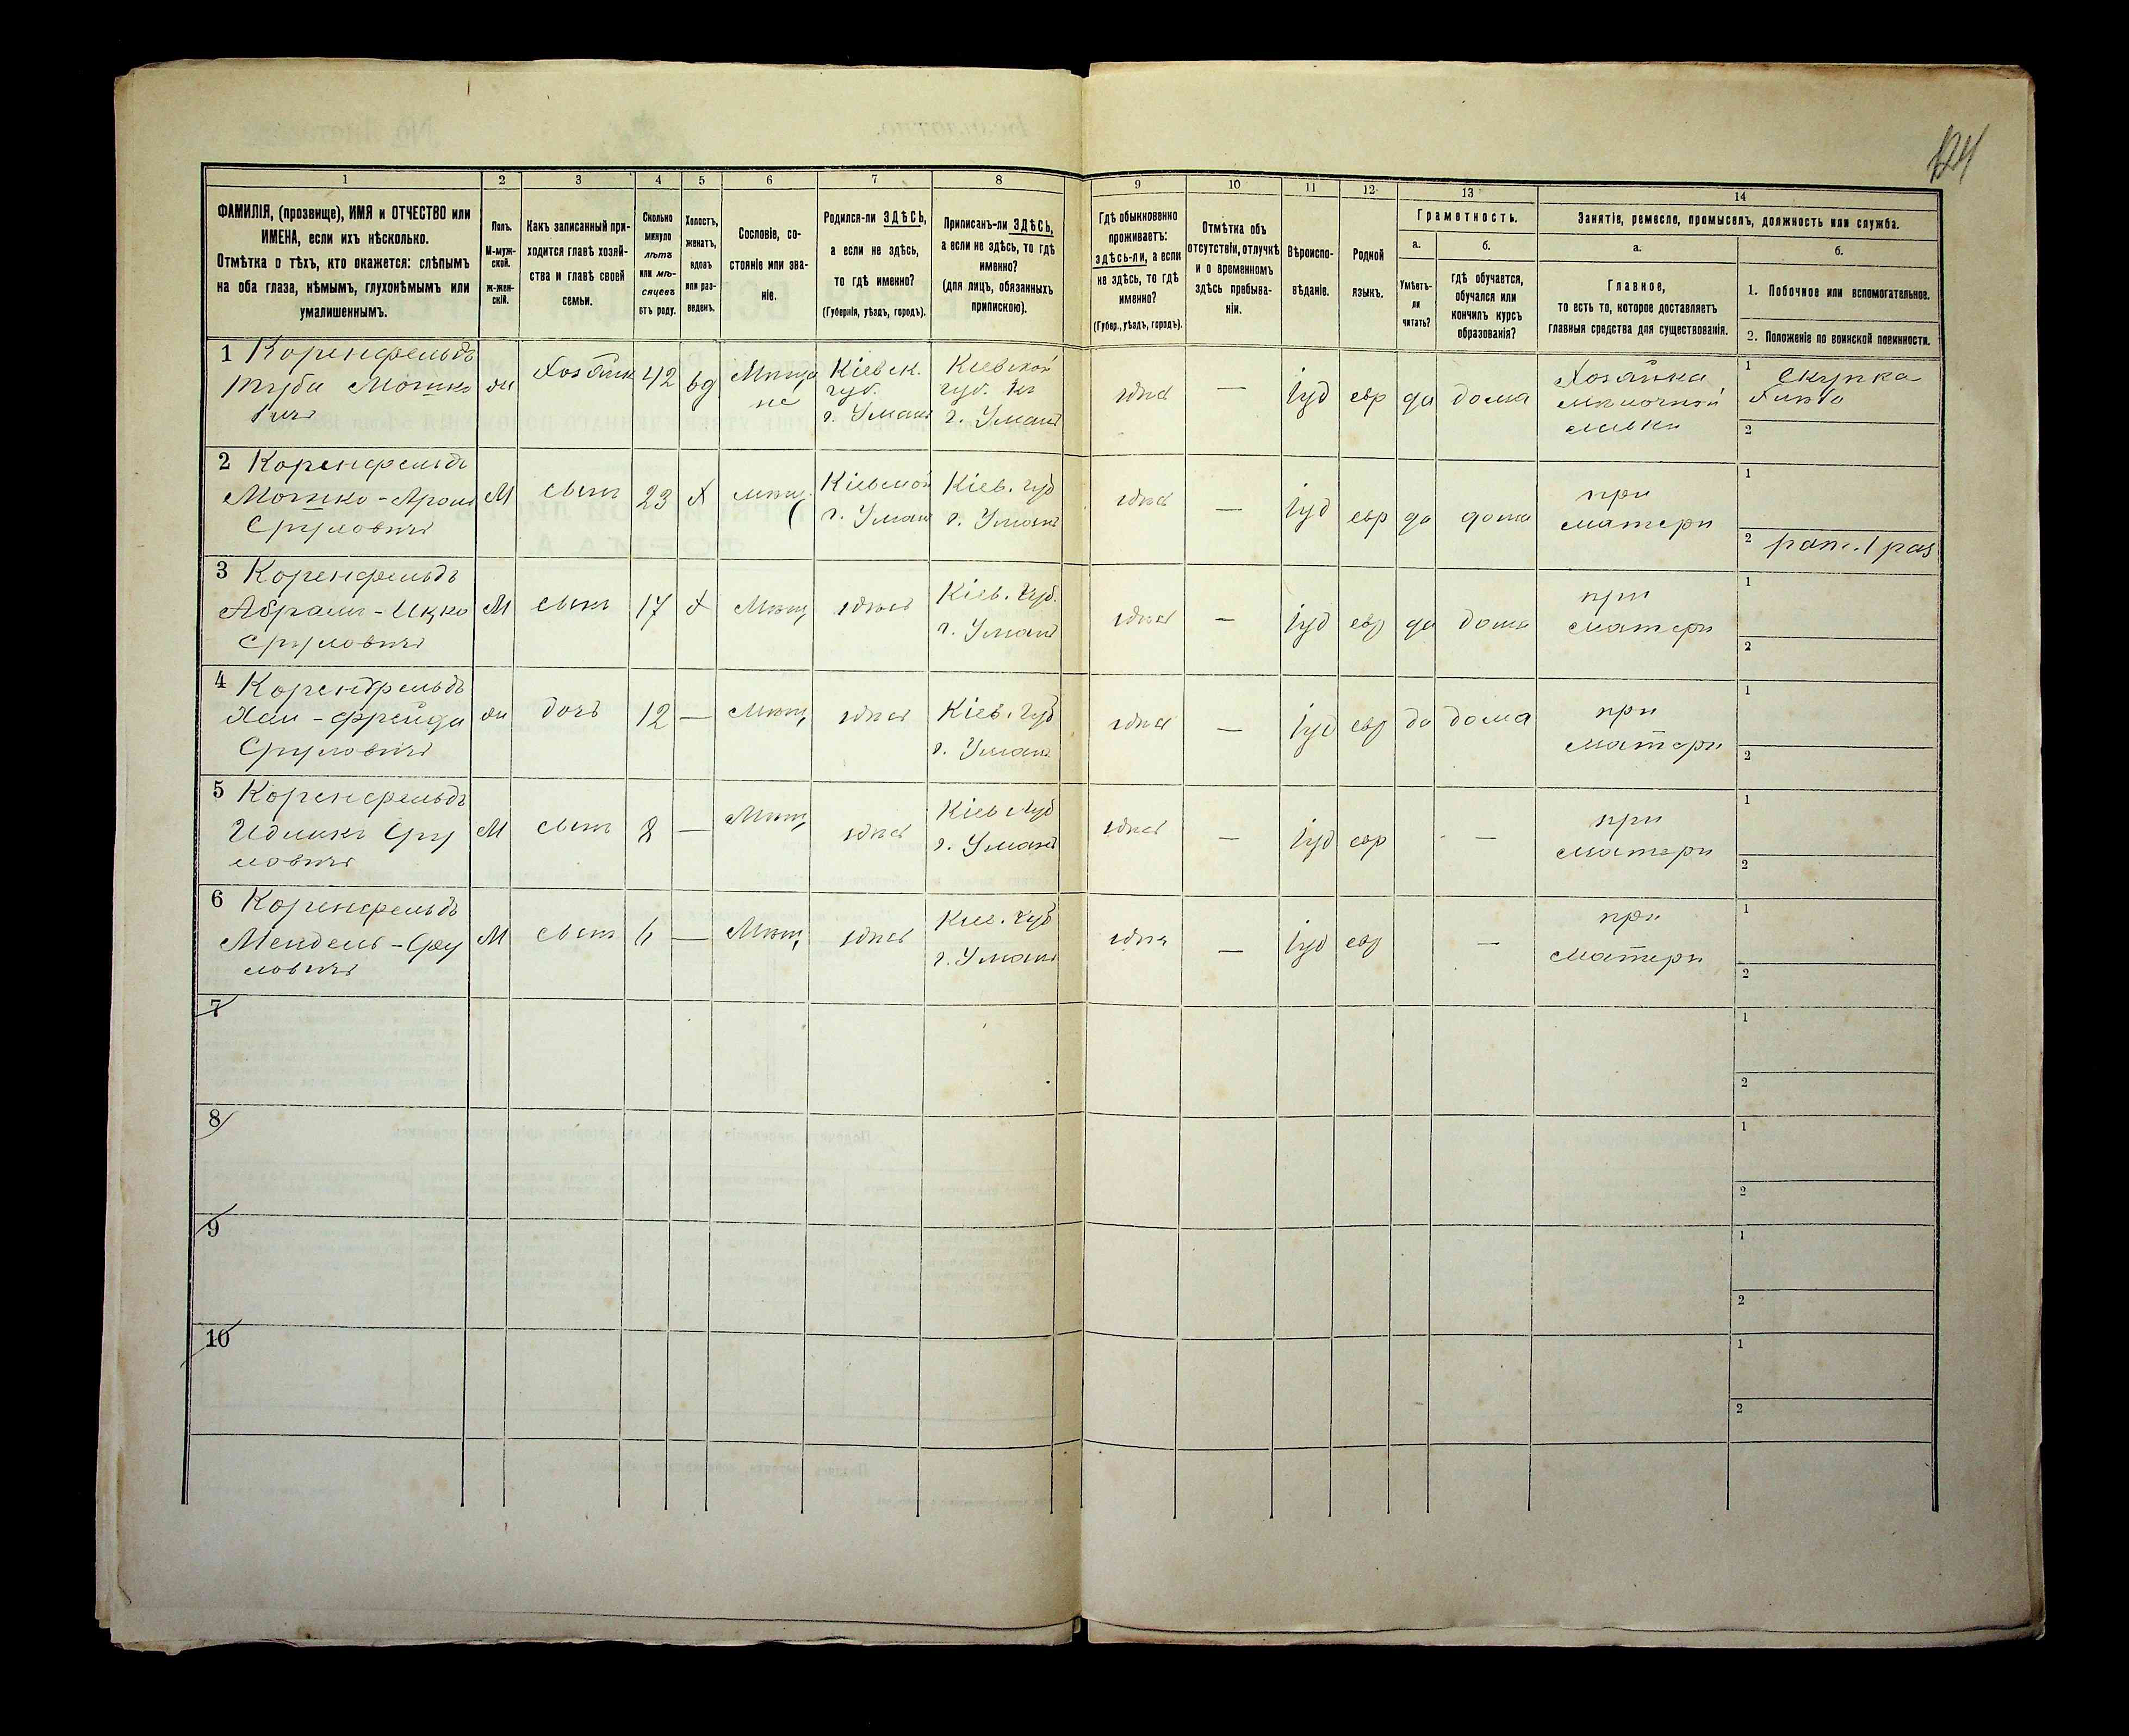 124
1 2 3 4 5 6 7 8 9 10 11 12 13 14
ФАМИЛІЯ, (прозвище), ИМЯ и ОТЧЕСТВО или
ИМЕНА, если ихъ нѣсколько.
Отмѣтка о тѣхъ, кто окажется: слѣпымъ
на оба глаза, нѣмымъ, глухонѣмымъ или
умалишеннымъ.
Полъ.
М-муж-
ской.
ж-жен-
скій.
Какъ записанный при-
ходится главѣ хозяй-
ства и главѣ своей
семьи.
Сколько
минуло
лѣтъ
или мѣ-
сяцевъ
отъ роду.
Холостъ,
женатъ,
вдовъ
или раз-
веденъ.
Сословіе, со-
стояніе или зва-
ніе.
Родился-ли ЗДѢСЬ,
а если не здѣсь,
то гдѣ именно?
(Губернія, уѣздъ, городъ).
Приписанъ-ли ЗДѢСЬ,
а если не здѣсь, то гдѣ
именно?
(для лицъ, обязанныхъ
припискою).
Гдѣ обыкновенно
проживаетъ:
здѣсь-ли, а если
не здѣсь, то гдѣ
именно?
(Губер., уѣздъ, городъ).
Отмѣтка объ
отсутствіи, отлучкѣ
и о временномъ
здѣсь пребыва-
ніи.
Вѣроиспо-
вѣданіе.
Родной
языкъ.
Грамотность.
а.
Умѣетъ-
ли
читать?
б.
гдѣ обучается,
обучался или
кончилъ курсъ
образованія?
Занятіе, ремесло, промыселъ, должность или служба.
а.
Главное,
то есть то, которое доставляетъ
главныя средства для существованія.
б.
1. Побочное или вспомогательное.
2. Положеніе по воинской повинности.
1 Коренфельдъ
Туба Мошко
вичъ
ж
Хозяйк
42
вд
Мѣща
не
Кіевск.
губ.
г. Умань
Кіевской
губ. къ
г. Умань
здѣсь
—
Іуд
евр
да
дома
Хозяйка
мѣлочной
лавки
1 Скупка
2
2 Коренфельдъ
Мошко-Аронъ
Сруловичъ
М
сынъ
23
Х
мѣщ.
Кіевской
г. Умань
Кіев. губ
г. Умань
здѣсь
—
Іуд
евр
да
дома
при
матери
1
2 рат. 1 раз
3 Коренфельдъ
Абрамъ-Ицко
Сруловичъ
М
сынъ
17
Х
Мѣщ,
здѣсь
Кіев. губ.
г. Умань
здѣсь
—
Іуд
евр
да
дома
при
матери
1
2
4 Коренфельдъ
Хаи-Фрейда
Сруловичъ
ж
дочь
12
—
Мѣщ,
здѣсь
Кіев. губ
г. Умань
здѣсь
—
Іуд
евр
да
дома
при
матери
1
2
5 Коренфельдъ
Идликъ Сру
ловичъ
М
сынъ
8
—
Мѣщ,
здѣсь
Кіев губ
г. Умань
здѣсь
—
Іуд
евр
—
при
матери
1
2
6 Коренфельдъ
Мендель-Сру
ловичъ
М
сынъ
6
—
Мѣщ,
здѣсь
Кіев. губ
г. Умань
здѣсь
—
Іуд
евр
—
при
матери
1
2
7
1
2
8
1
2
9
1
2
10
1
2